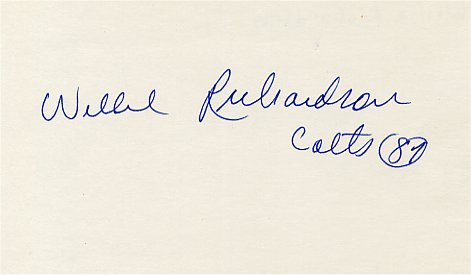 Willie Richardson
Colts 87